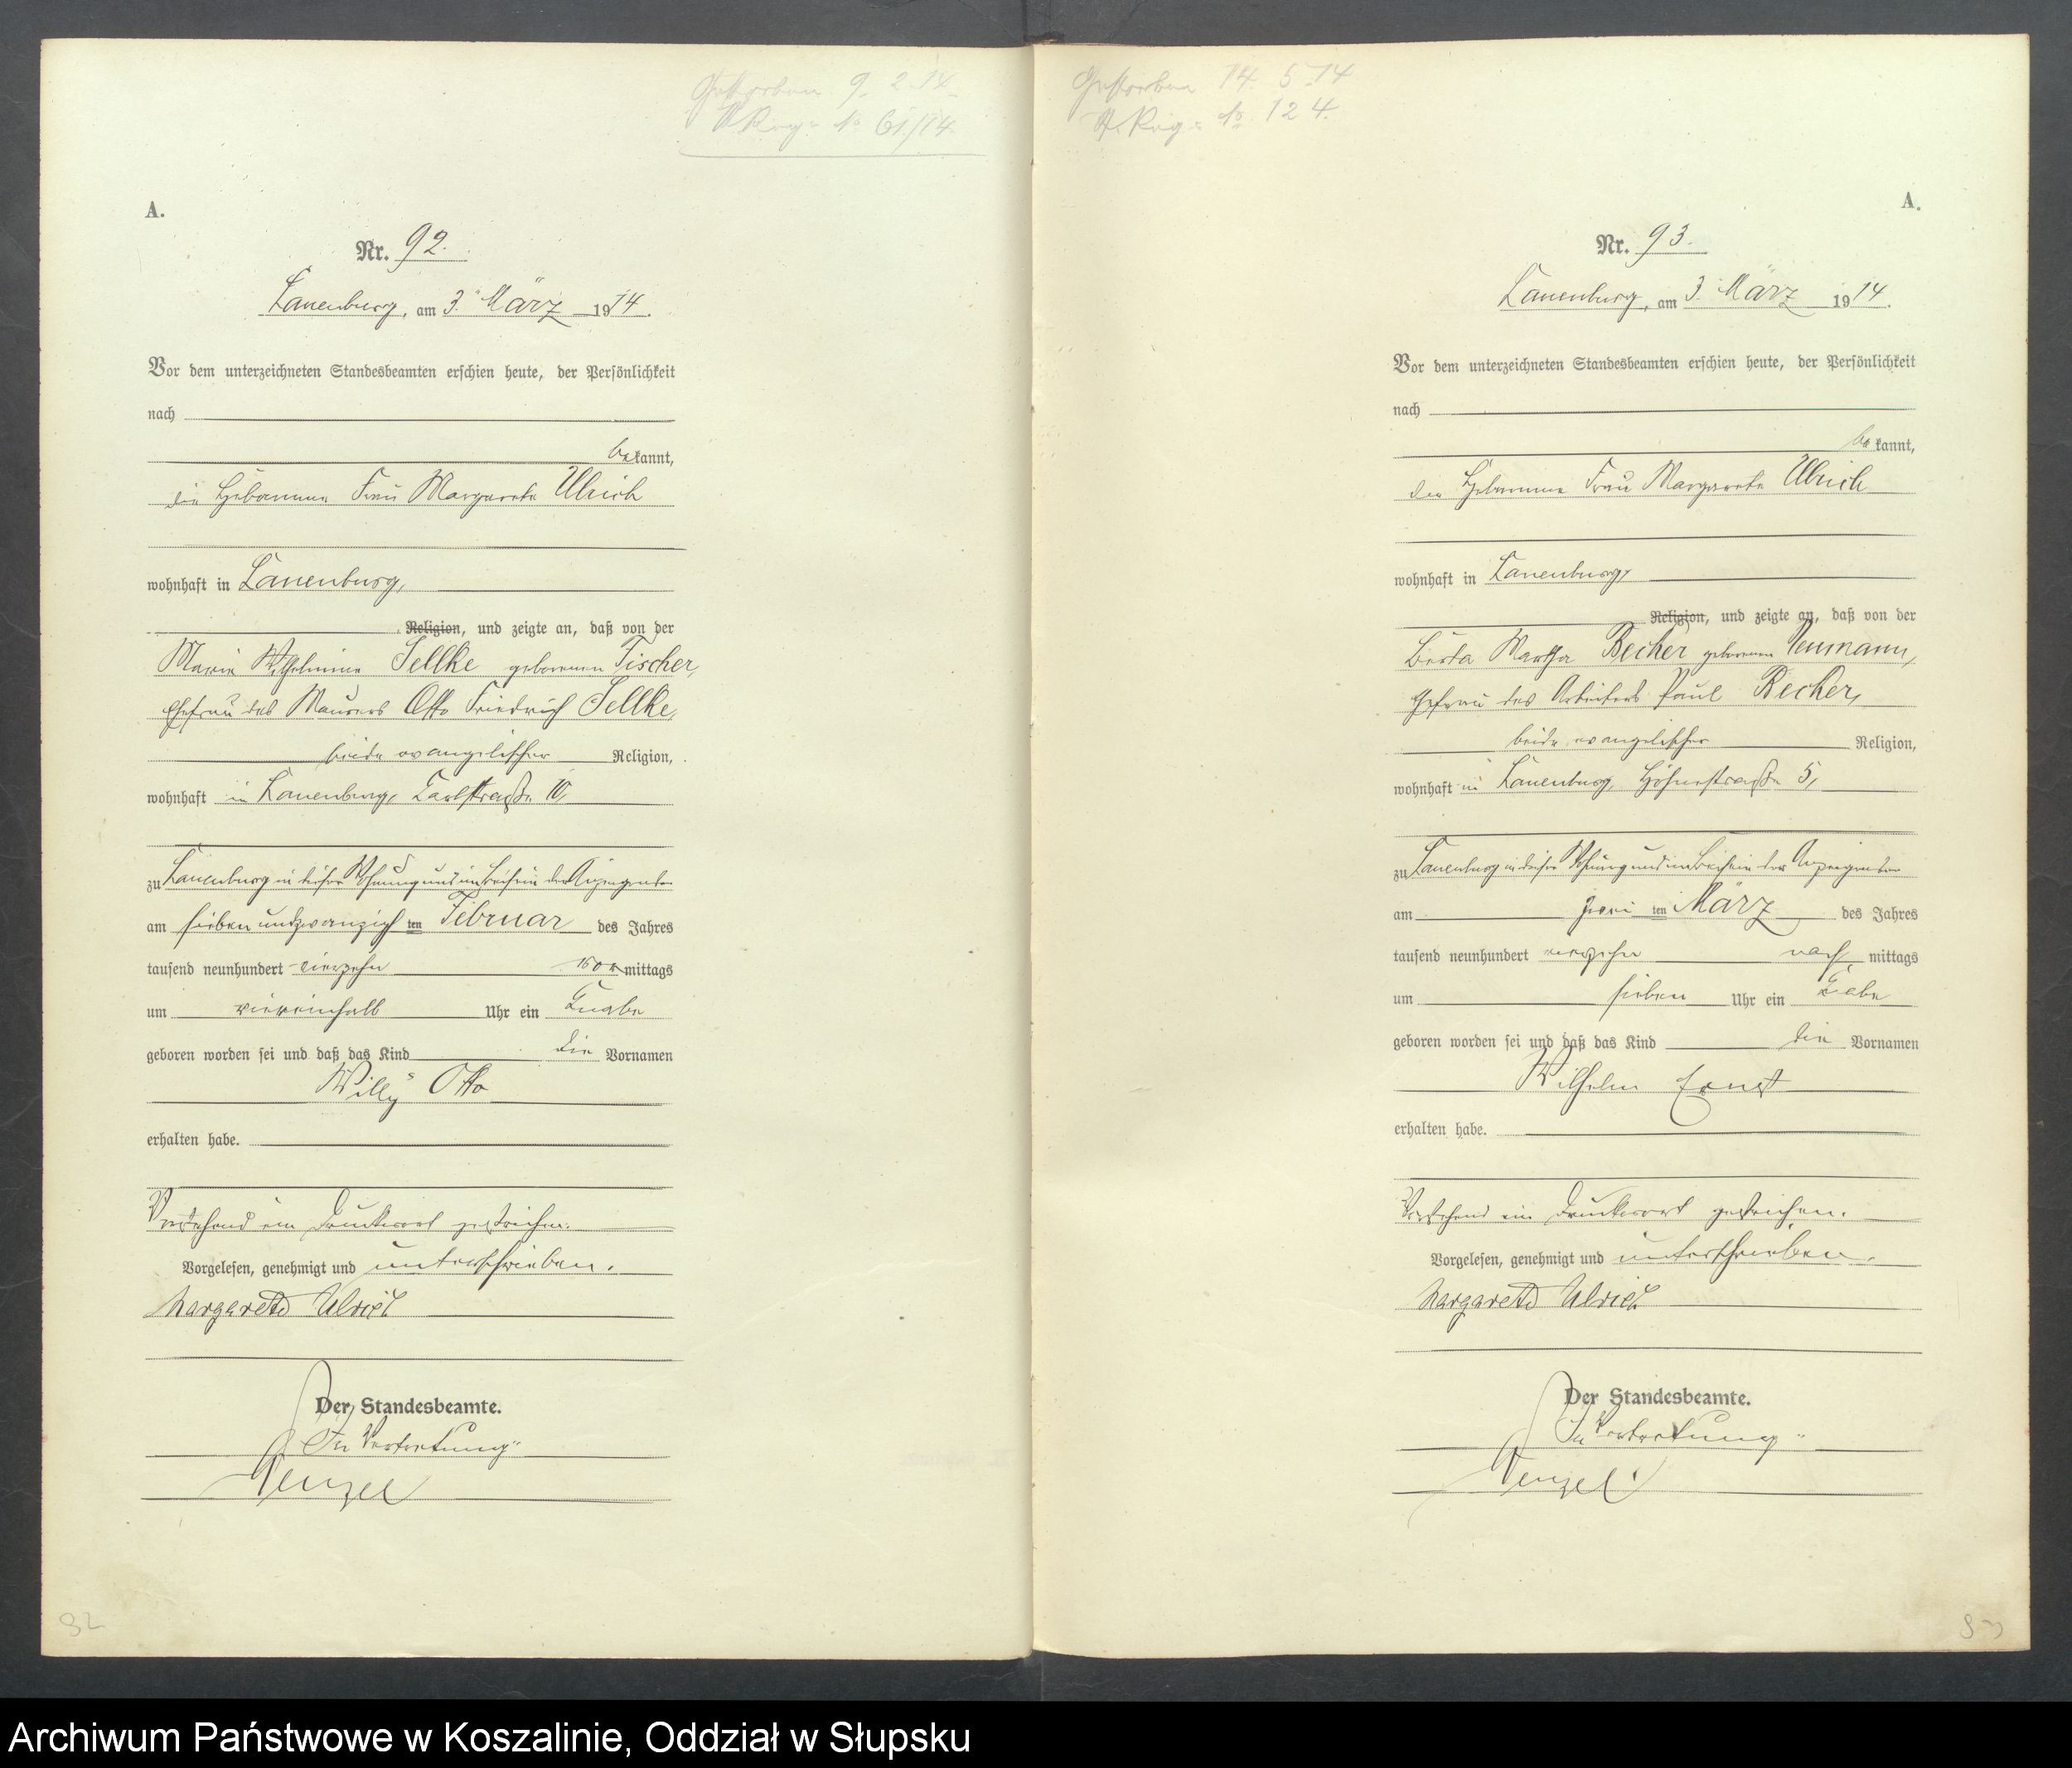 Gestorben 9. 2. 14.
St. Reg. No 61/14.
A.
Nr. 92.
Lauenburg, am 3. März 1914.
Vor dem unterzeichneten Standesbeamten erschien heute, der Persönlichkeit
nach
bekannt,
die Hebamme Frau Margarete Ulrich
wohnhaft in Lauenburg,
Religion, und zeigte an, daß von der
Marie Wilhelmine Sellke geborenen Fischer,
Ehefrau des Maurers Otto Friedrich Sellke,
beide evangelischer Religion,
wohnhaft in Lauenburg, Karlstraße 10,
zu Lauenburg in dieser Wohnung und im Beisein der Anzeigenden
am siebenundzwanzigsten Februar des Jahres
tausend neunhundert vierzehn vormittags
um viereinhalb Uhr ein Knabe
geboren worden sei und daß das Kind die Vornamen
Willy Otto
erhalten habe.
Vorstehend ein Druckwort gestrichen.
Vorgelesen, genehmigt und unterschrieben.
Margarete Ulrich
Der Standesbeamte.
In Vertretung
Wenzel
92
Gestorben 14. 5. 14
St. Reg. No 124.
A.
Nr. 93.
Lauenburg, am 3. März 1914.
Vor dem unterzeichneten Standesbeamten erschien heute, der Persönlichkeit
nach
bekannt,
die Hebamme Frau Margarete Ulrich
wohnhaft in Lauenburg,
Religion, und zeigte an, daß von der
Berta Martha Becker geborenen Neumann,
Ehefrau des Arbeiters Paul Becker,
beide evangelischer Religion,
wohnhaft in Lauenburg, Höhnestraße 5,
zu Lauenburg in dieser Wohnung und im Beisein der Anzeigenden
am zweiten März des Jahres
tausend neunhundert vierzehn nachmittags
um sieben Uhr ein Knabe
geboren worden sei und daß das Kind die Vornamen
Wilhelm Ernst
erhalten habe.
Vorstehend ein Druckwort gestrichen.
Vorgelesen, genehmigt und unterschrieben.
Margarete Ulrich
Der Standesbeamte.
In Vertretung
Wenzel
93
Archiwum Państwowe w Koszalinie, Oddział w Słupsku